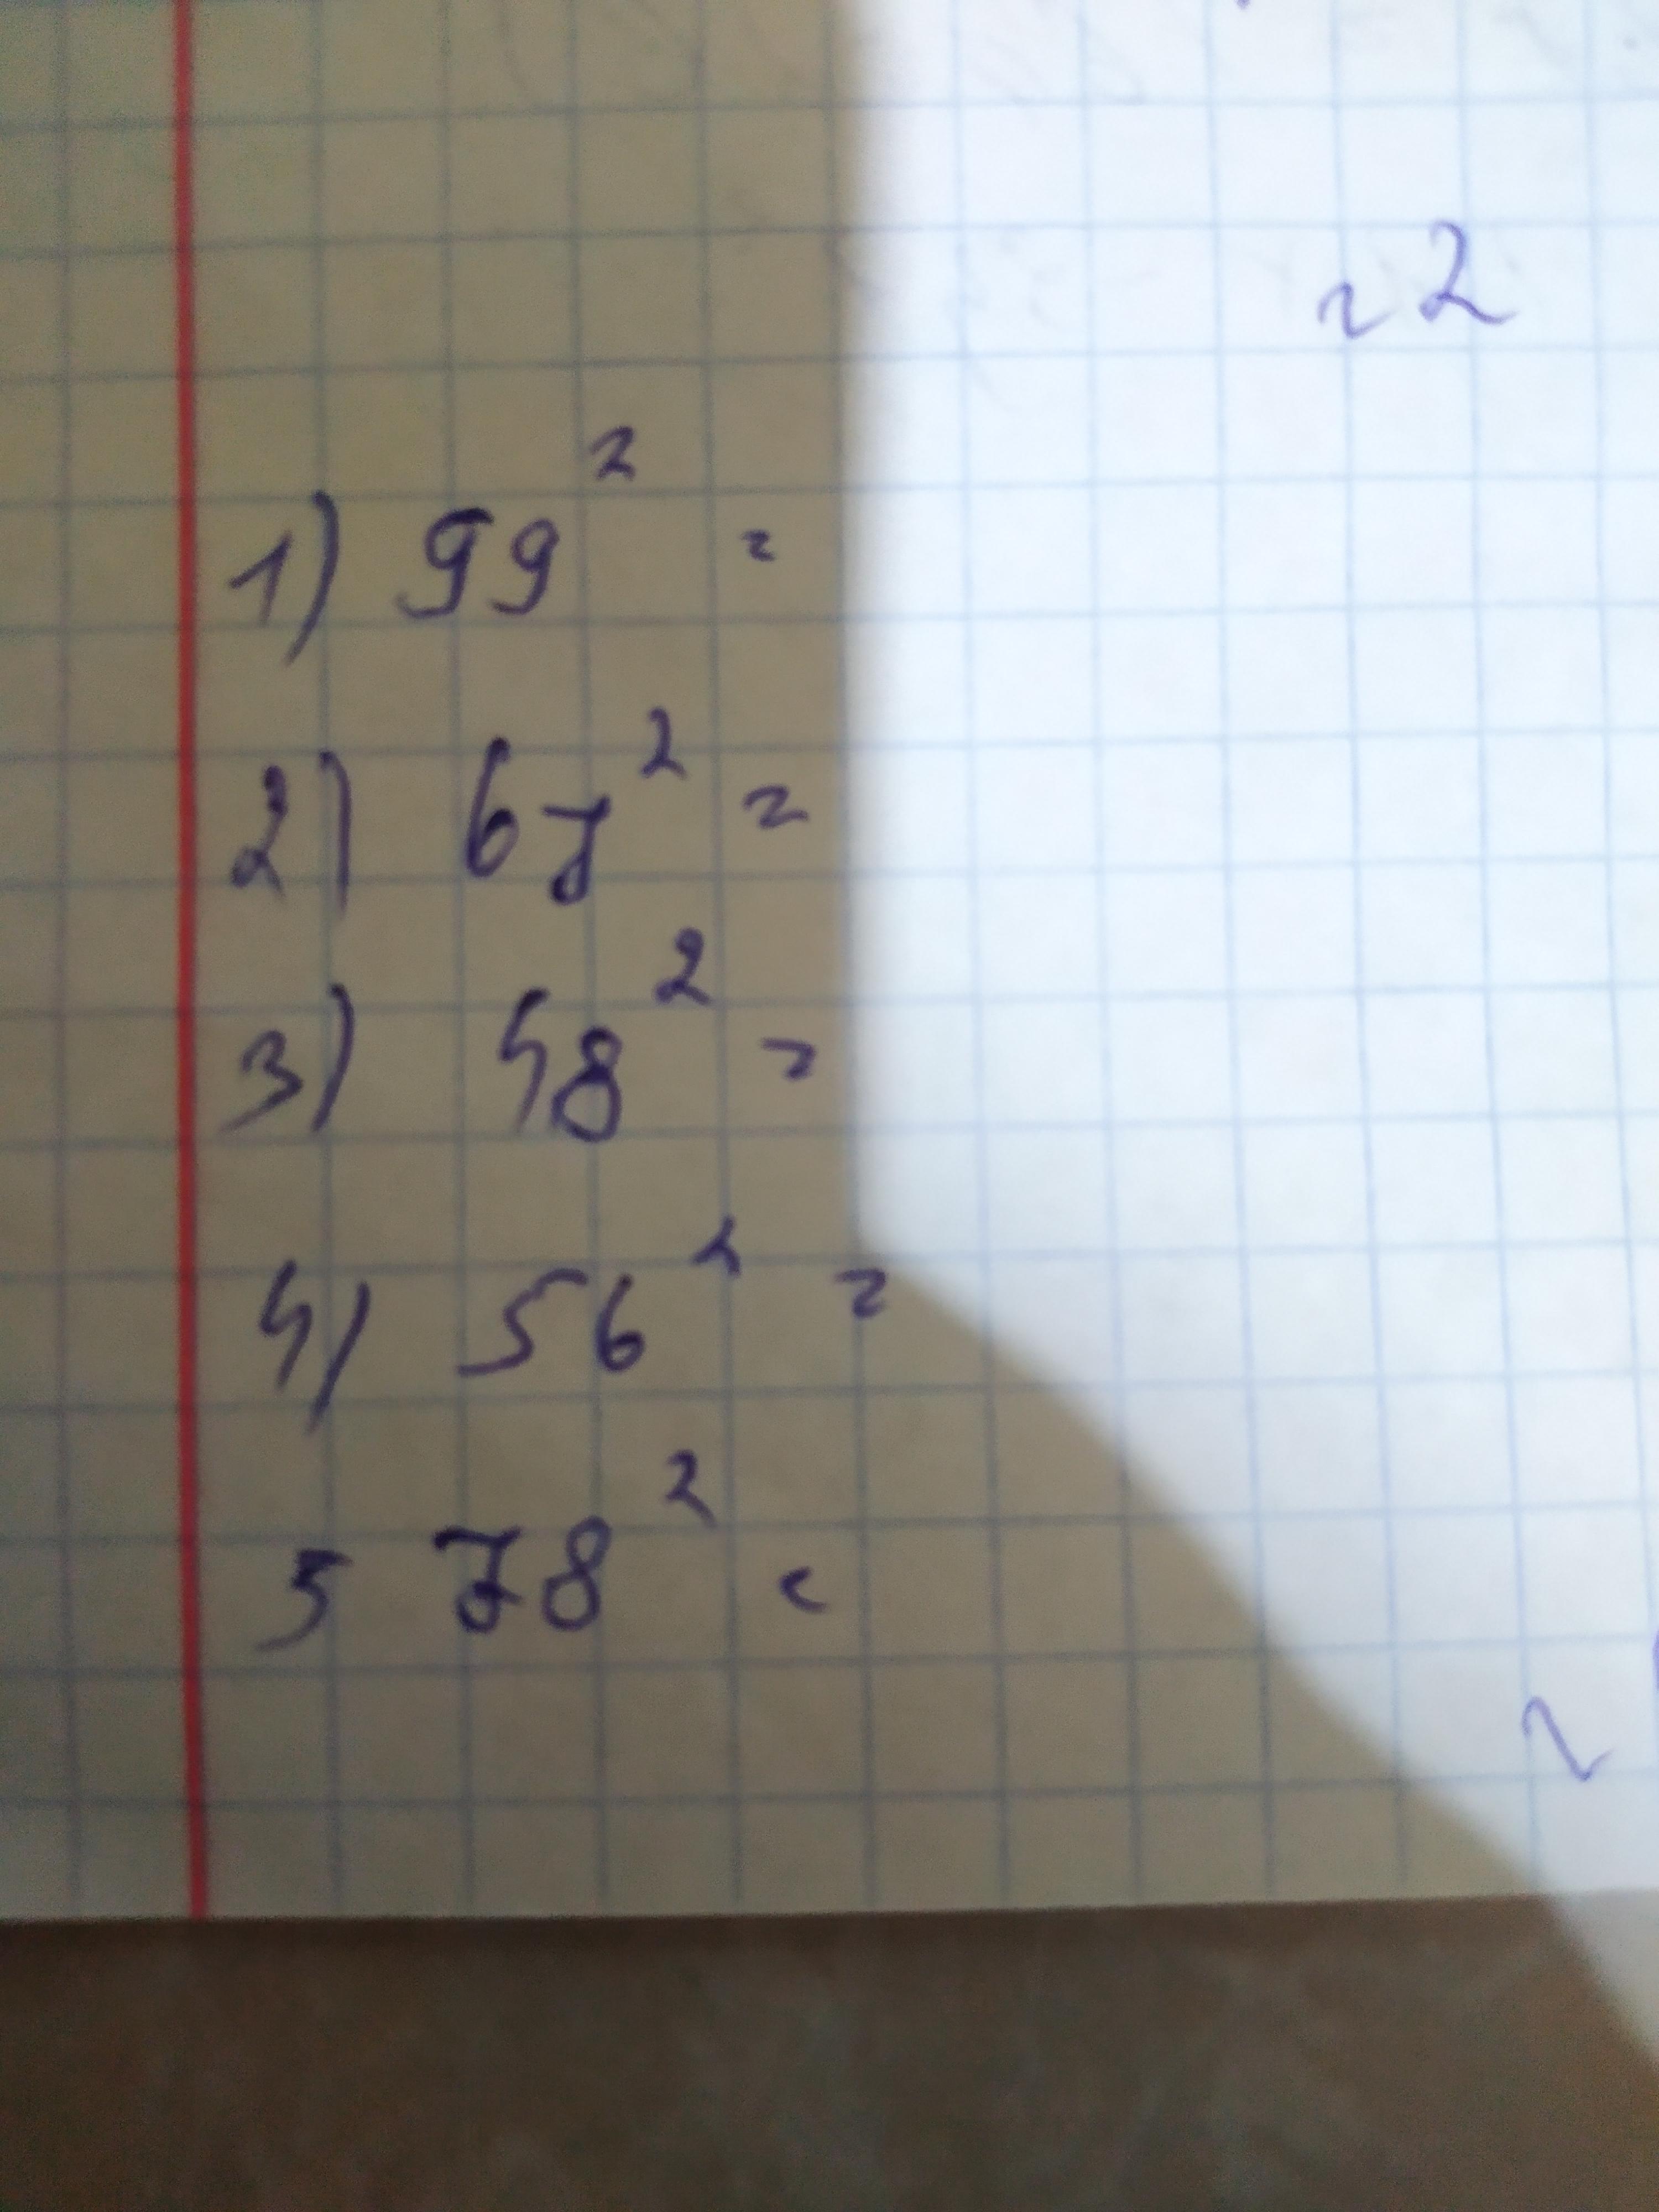 ≈ 2
1) 99² =
2) 67² =
3) 48² =
4) 56² =
5 78² =